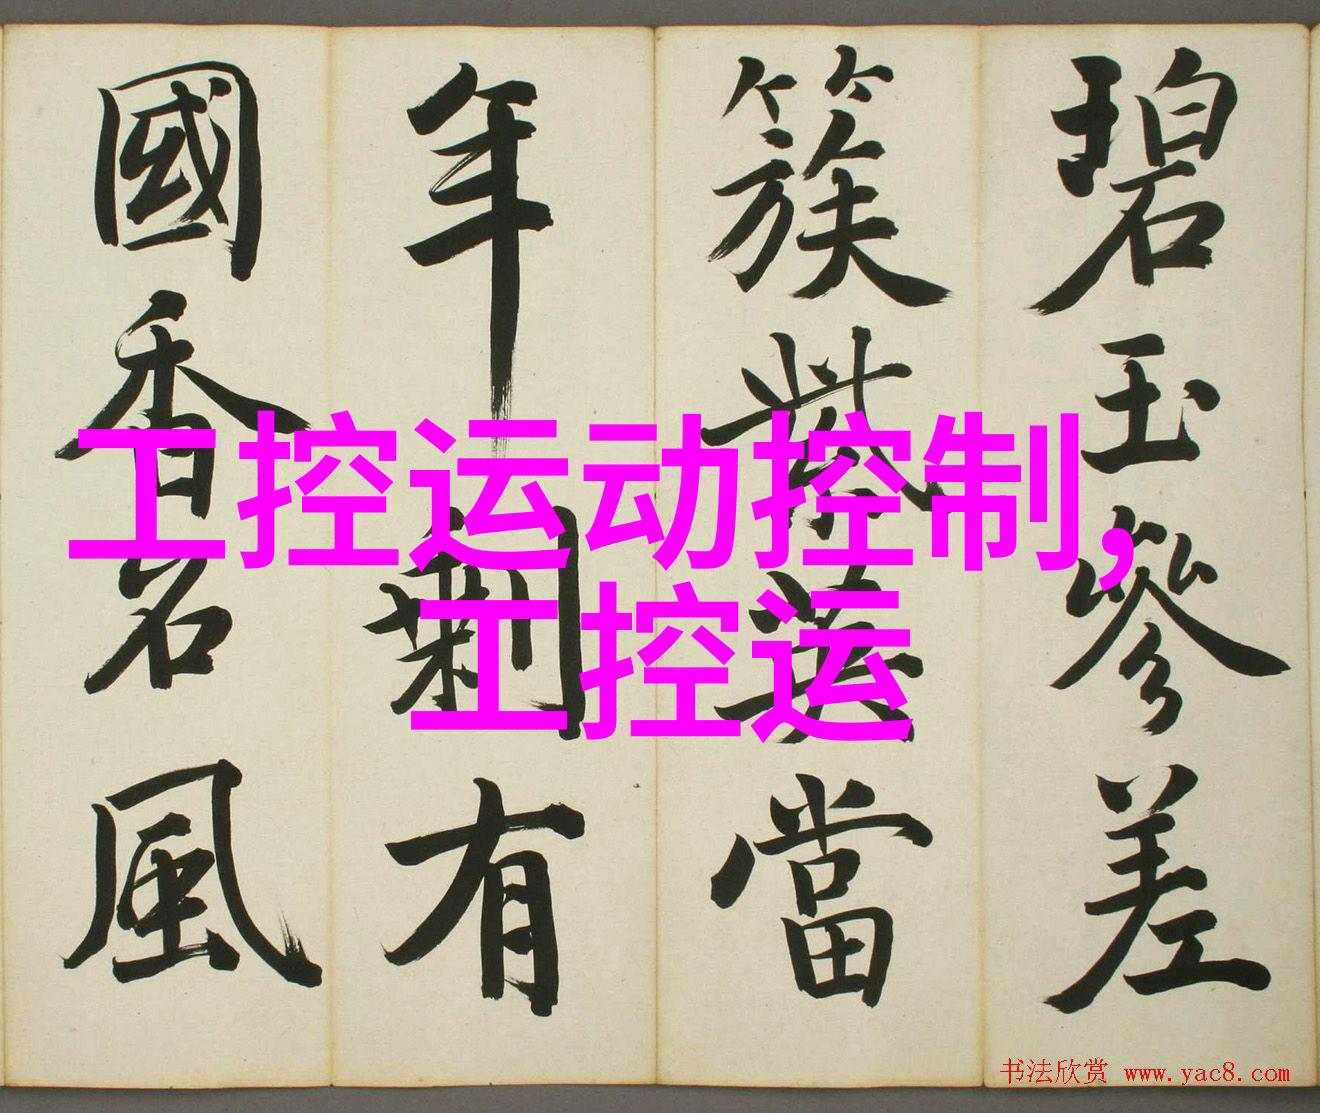 碧玉參差
簇紫英當
年剩有
國香名風
工控运动控制,
工控运
书法欣赏 www.yac8.com